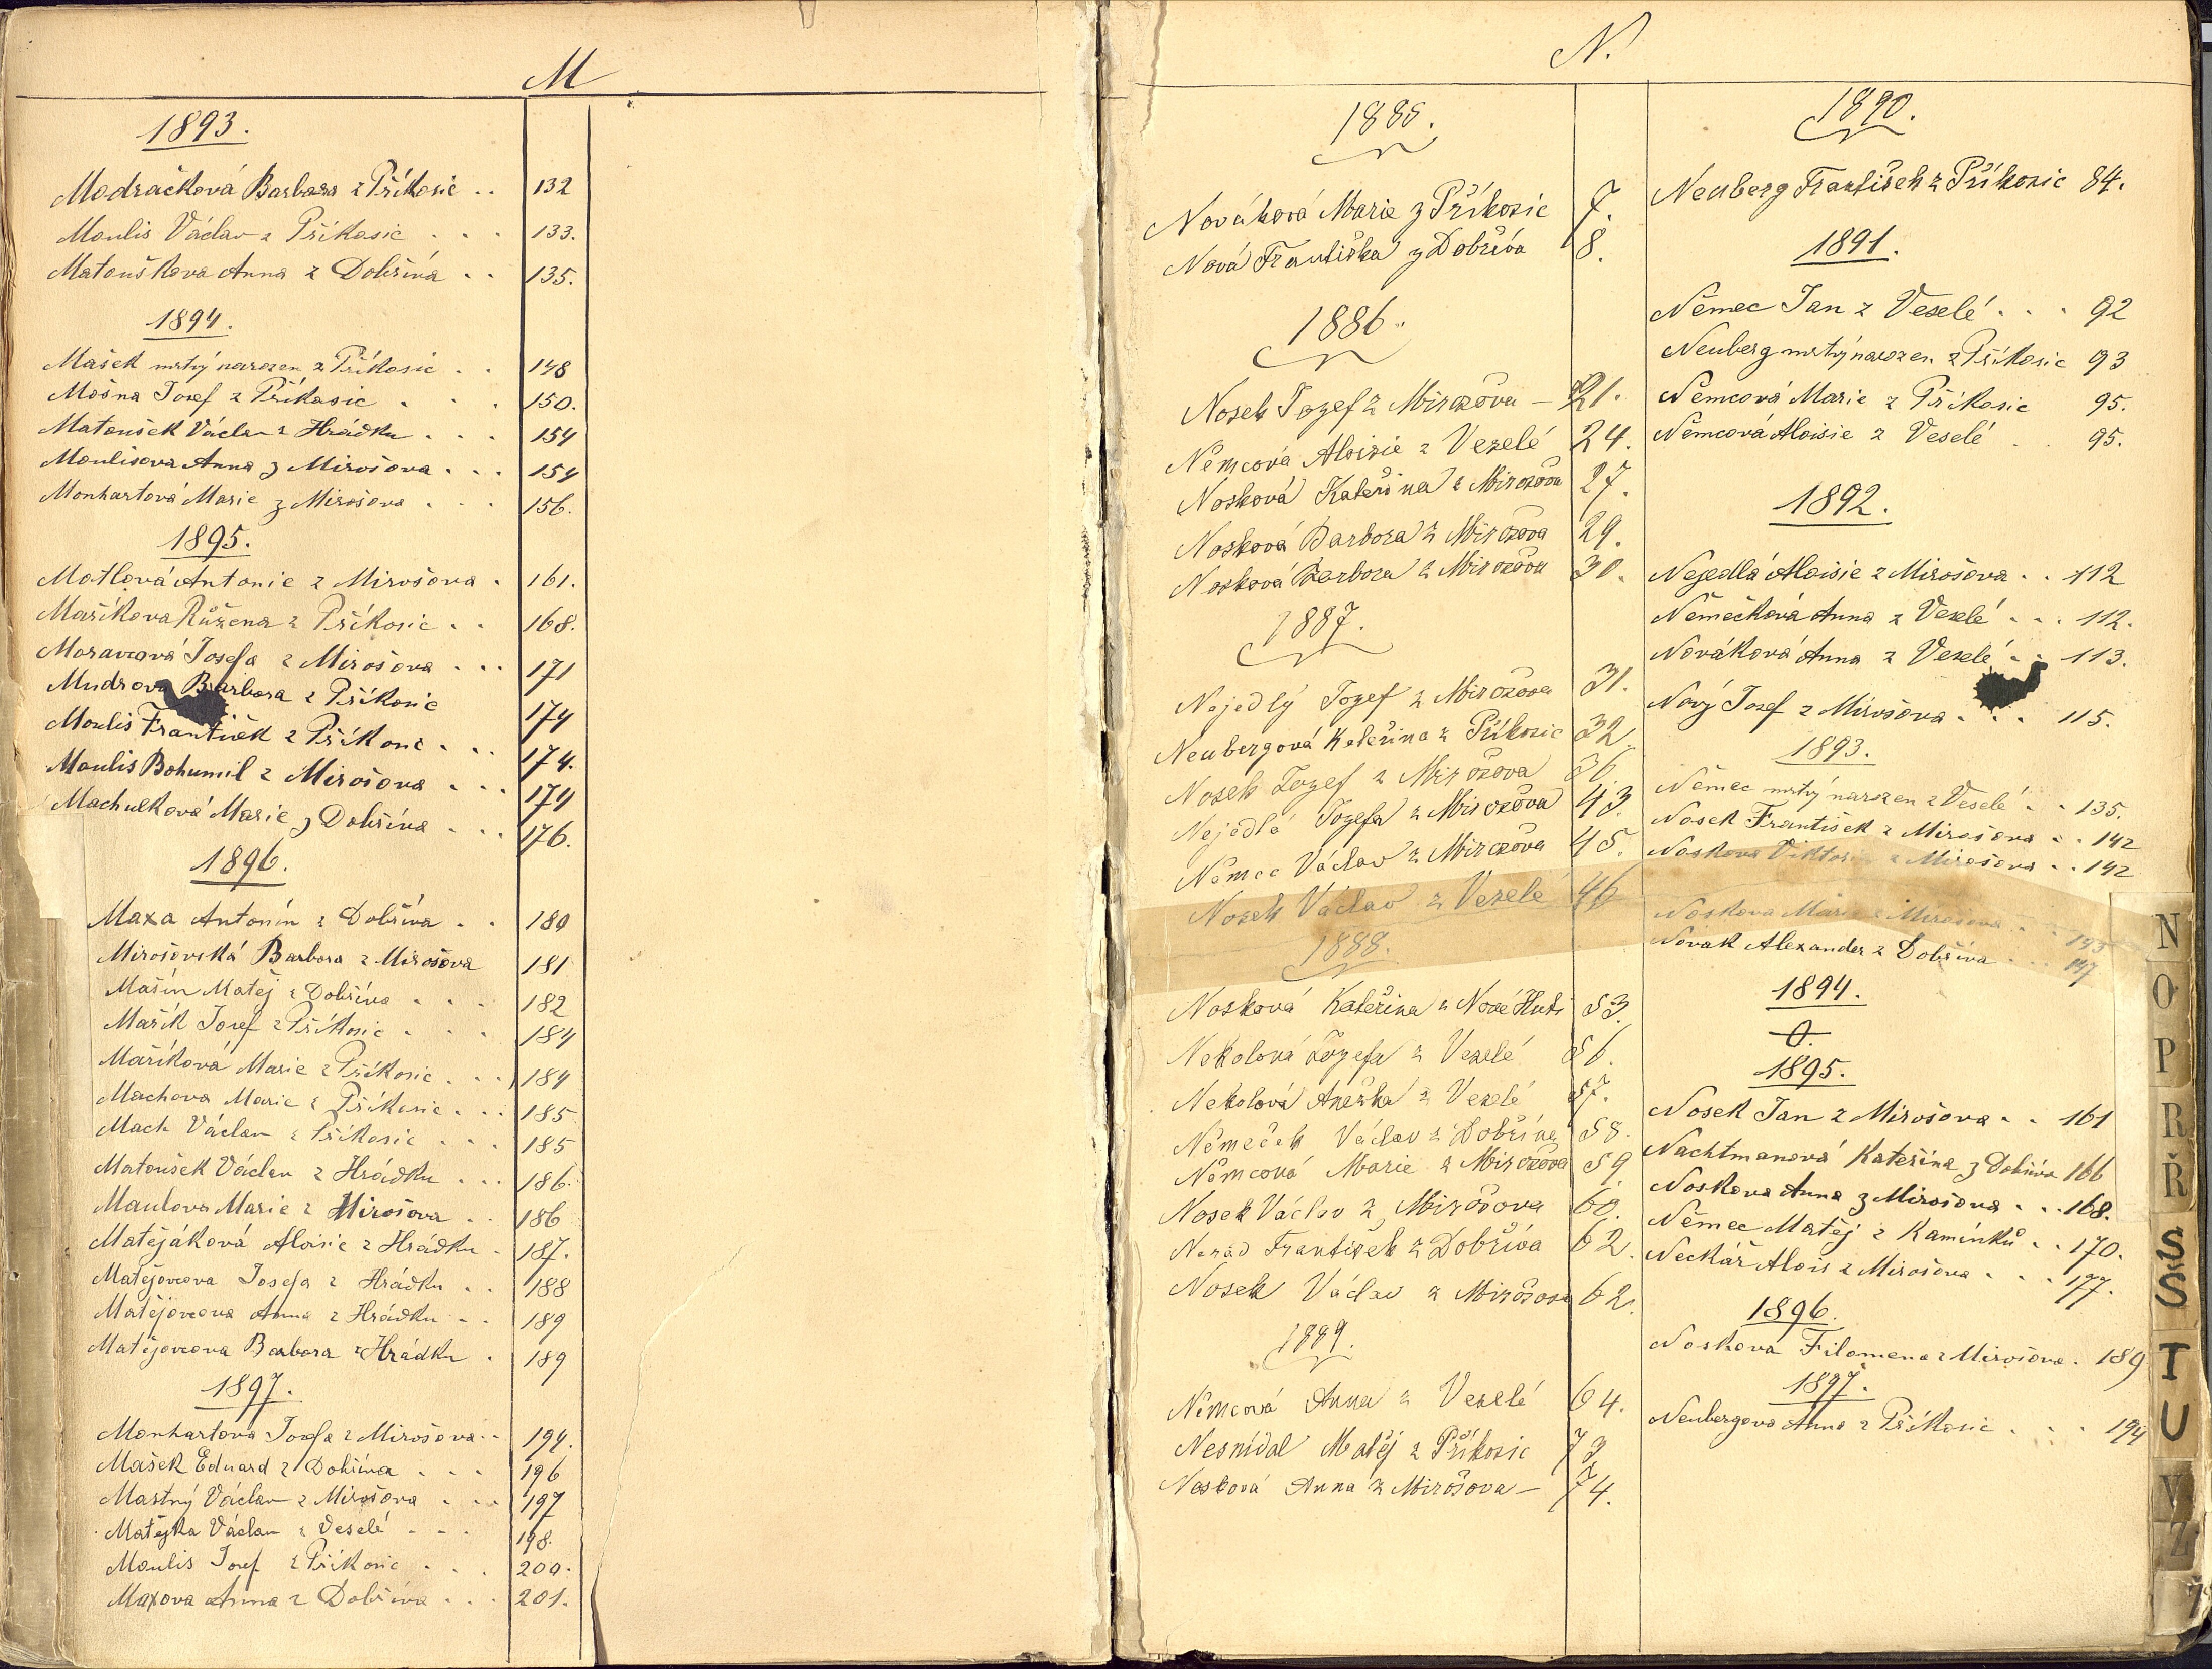 M
1893.
Modračková Barbara z Příkosic . . 132
Moulis Václav z Příkosic . . . 133.
Matouškova Anna z Dobřiva . . 135.
1894.
Mašek mrtvý narozen z Příkosic . . 148
Mošna Josef z Příkosic . . . 150.
Matoušek Václav z Hrádku . . . 154
Moulisova Anna z Mirošova . . . 154
Monhartová Marie z Mirošova . . . 156.
1895.
Motlová Antonie z Mirošova . 161.
Maříkova Růžena z Příkosic . . 168.
Moravcová Josefa z Mirošova . . . 171
Mudrova Barbora z Příkosic 174
Moulis František z Příkosic . . . 174.
Moulis Bohumil z Mirošova . . . 174
Machulková Marie z Dobříva . . . 176.
1896.
Maxa Antonín z Dobříva . . 180
Mirošovská Barbora z Mirošova 181
Mašín Matěj z Dobříva . . . 182
Mařík Josef z Příkosic . . . 184
Maříková Marie z Příkosic . . . 184
Machova Marie z Příkosic . . . 185
Mach Václav z Příkosic . . . 185
Matoušek Václav z Hrádku . . . 186.
Maulova Marie z Mirošova . . 186
Matějáková Aloisie z Hrádku . 187.
Matějovcova Josefa z Hrádku . . 188
Matějovcova Anna z Hrádku . . 189
Matějovcova Barbora z Hrádku . 189
1897.
Monhartova Josefa z Mirošova . . 194.
Mašek Eduard z Dobříva . . . 196
Mastný Václav z Mirošova . . . 197
Matějka Václav z Veselé . . . 198.
Moulis Josef z Příkosic . . . 200.
Maxova Anna z Dobříva . . . 201.
N.
1885.
Nováková Marie z Příkosic 7.
Nová Františka z Dobříva 8.
1886.
Nosek Jozef z Mirošova — 21.
Němcová Aloisie z Veselé 24.
Nosková Kateřina z Mirošova 27.
Nosková Barbora z Mirošova 29.
Nosková Barbora z Mirošova 30.
1887.
Nejedlý Jozef z Mirošova 31.
Neubergová Kateřina z Příkosic 32.
Nosek Jozef z Mirošova 36.
Nejedlá Jozefa z Mirošova 43.
Němec Václav z Mirošova 45.
Nosek Václav z Veselé 46
1888.
Nosková Kateřina z Nové Huti 53.
Nekolová Jozefa z Veselé 56.
Nekolová Anežka z Veselé 57.
Němeček Václav z Dobříva 58.
Němcová Marie z Mirošova 59.
Nosek Václav z Mirošova 60.
Nerad František z Dobříva 62.
Nosek Václav z Mirošova 62.
1889.
Němcová Anna z Veselé 64.
Nesnídal Matěj z Příkosic 73
Nosková Anna z Mirošova — 74.
1890.
Neuberg František z Příkosic 84.
1891.
Němec Jan z Veselé . . . 92
Neuberg mrtvý narozen z Příkosic 93
Němcová Marie z Příkosic 95.
Němcová Aloisie z Veselé . . 95.
1892.
Nejedlá Aloisie z Mirošova . . 112
Němečková Anna z Veselé . . . 112.
Nováková Anna z Veselé . . 113.
Nový Josef z Mirošova . . . 115.
1893.
Němec mrtvý narozen z Veselé . . 135.
Nosek František z Mirošova . . 142
Noskova Viktorie z Mirošova . . 142
Noskova Marie z Mirošova . . 145
Novák Alexander z Dobříva . . . 147
1894.
0.
1895.
Nosek Jan z Mirošova . . 161
Nachtmanová Kateřina z Dobříva 166
Noskova Anna z Mirošova . . . 168.
Němec Matěj z Kamínků . . 170.
Neckář Alois z Mirošova . . . 177.
1896.
Noskova Filomena z Mirošova . 189
1897.
Neubergova Anna z Příkosic . . . . 194
N
O
P
R
Ř
S
Š
T
U
V
Z
Ž